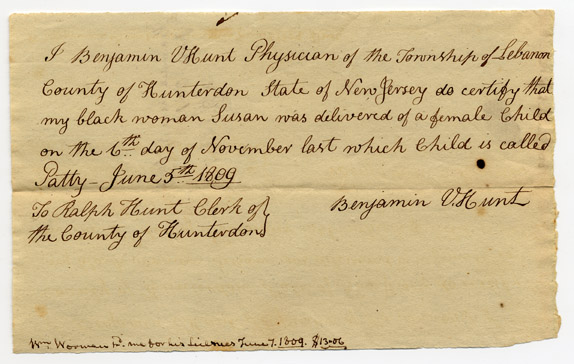 I Benjamin V Hunt Physician of the Township of Lebanon
County of Hunterdon State of New Jersey do certify that
my black woman Susan was delivered of a female Child
on the 6th day of November last which Child is called
Patty – June 5th 1809
To Ralph Hunt Clerk of
the County of Hunterdon}
Benjamin V. Hunt
Wm. Worman Pd. me for his Licenses June 7. 1809. $13=06